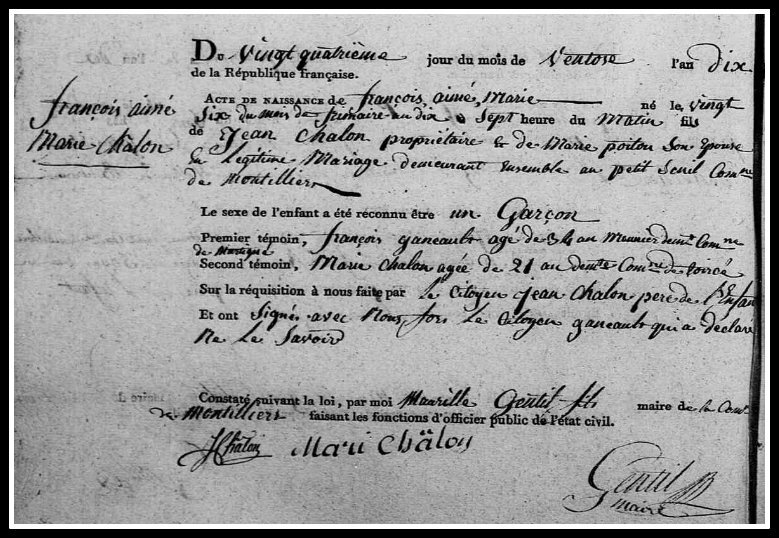 Du vingt quatrième jour du mois de Ventose l'an dix
de la République française.
françois aimé
Marie Chalon
ACTE DE NAISSANCE de françois aimé Marie né le vingt
Six du mois de frimaire an dix a Sept heure du Matin fils
de Jean Chalon propriétaire & de Marie poitou Son Epouse
En Legitime Mariage demeurant Ensemble au petit Seuil Comne
de Montilliers
Le sexe de l'enfant a été reconnu être un Garçon
Premier témoin, françois ganeault agé de 34 an Meunier demt Comne
de Martigné
Second témoin, Marie Chalon agée de 21 an demte Comne de
Sur la réquisition à nous faite par Le Citoyen Jean Chalon pere de l'Enfan
Et ont Signés avec Nous, fors Le Citoyen ganeault qui a declaré
Ne Le Savoir
Constaté suivant la loi, par moi Maurille Gentil fls maire de la Comne
de Montilliers faisant les fonctions d'officier public de l'état civil.
JChalon Mari Chälon
Gentil
maire